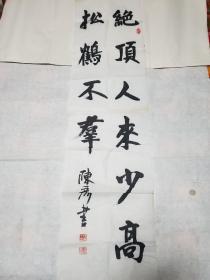 絶頂人來少高
松鶴不羣
陳彥書